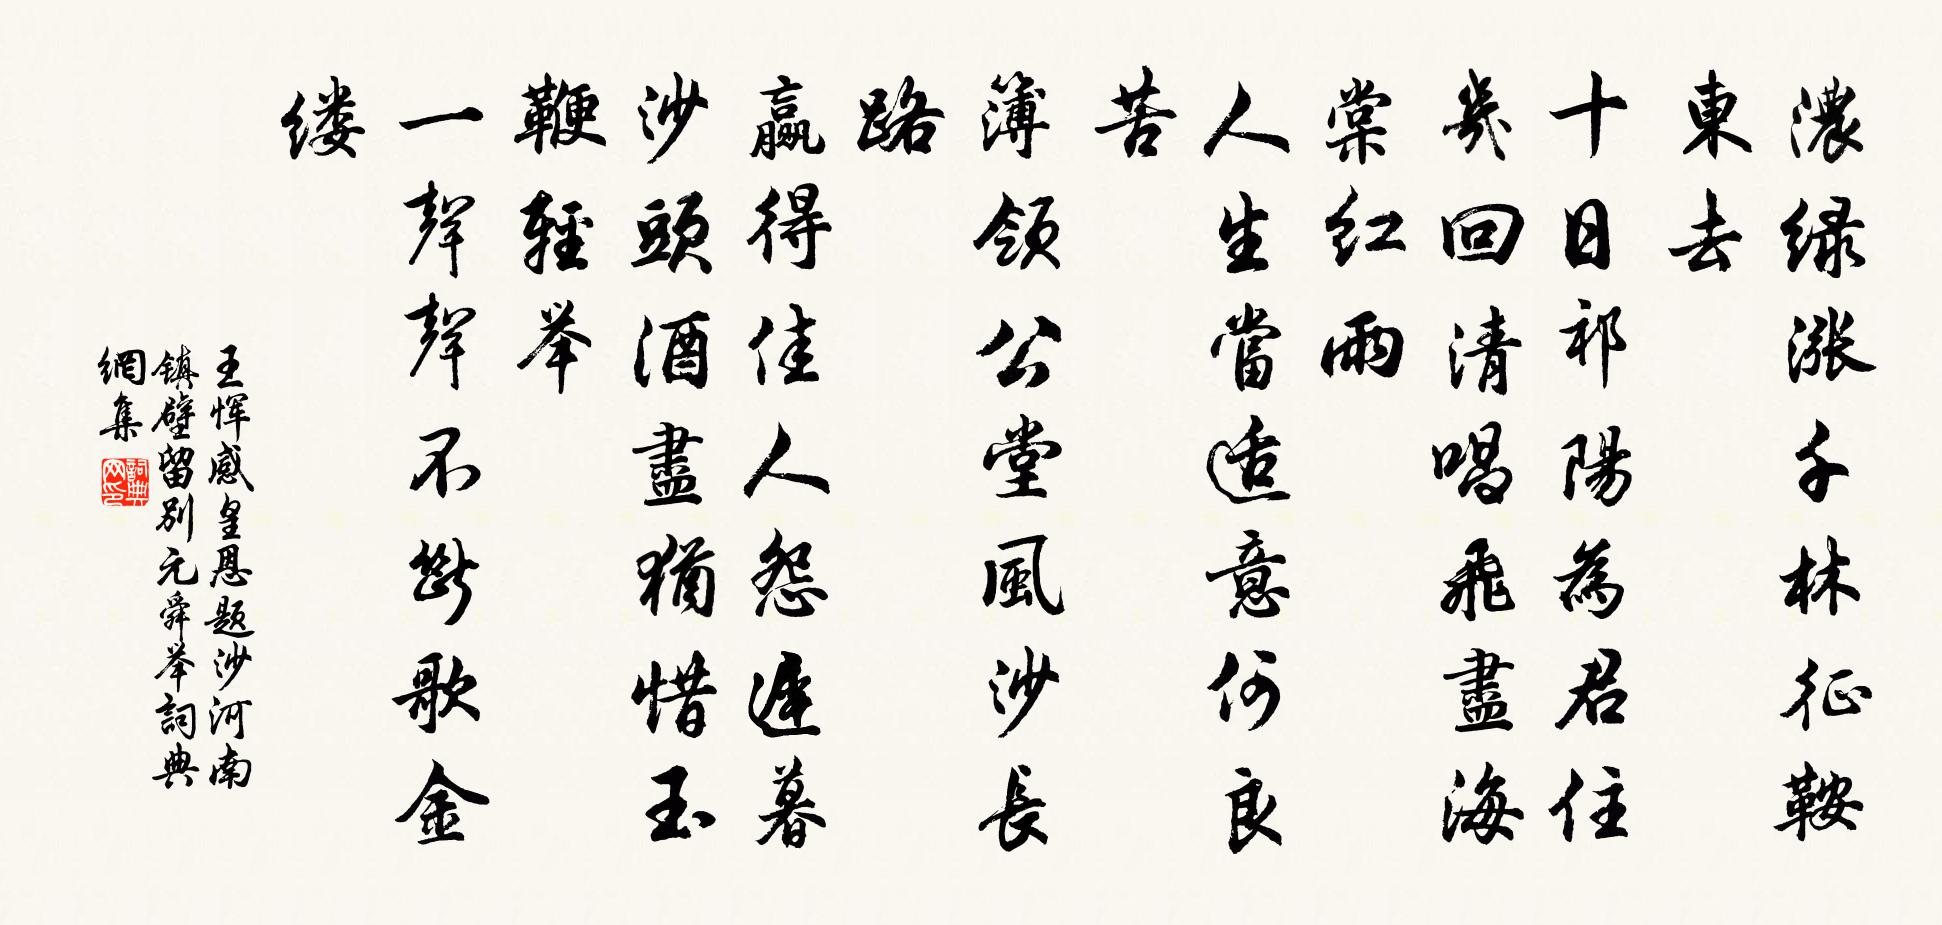 濃绿漲千林征鞍
東去
十日祁陽為君住
幾回清唱飛盡海
棠红雨
人生當适意何良
苦
簿领公堂風沙長
路
贏得佳人怨遲暮
沙頭酒盡猶惜玉
鞭輕举
一聲聲不斷歌金
缕
王恽感皇恩题沙河南
镇壁留别元舜举詞典
網集
詞典网印